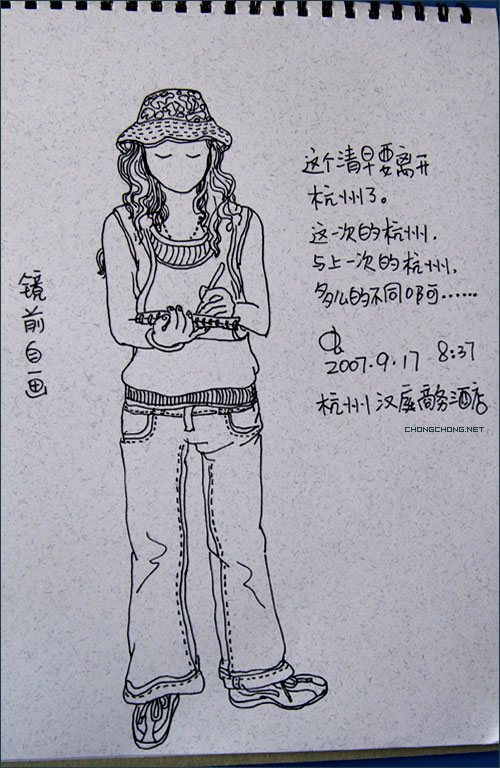 镜前自画
这个清早要离开
杭州了。
这一次的杭州,
与上一次的杭州,
多么的不同啊……
2007.9.17 8:37
杭州汉庭商务酒店
CHONGCHONG.NET